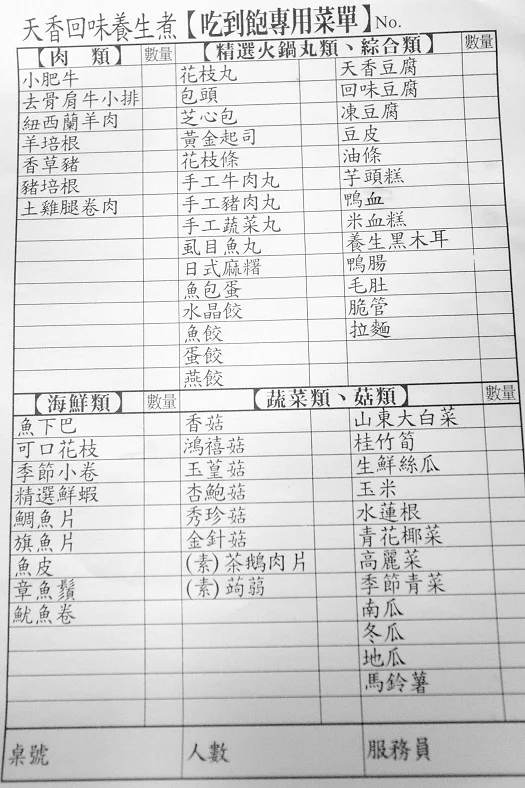 天香回味養生煮【吃到飽專用菜單】No.
【肉 類】 數量 【精選火鍋丸類、綜合類】 數量
小肥牛 花枝丸 天香豆腐
去骨肩牛小排 包頭 回味豆腐
紐西蘭羊肉 芝心包 凍豆腐
羊培根 黃金起司 豆皮
香草豬 花枝條 油條
豬培根 手工牛肉丸 芋頭糕
土雞腿卷肉 手工豬肉丸 鴨血
手工蔬菜丸 米血糕
虱目魚丸 養生黑木耳
日式麻糬 鴨腸
魚包蛋 毛肚
水晶餃 脆管
魚餃 拉麵
蛋餃
燕餃
【海鮮類】 數量 【蔬菜類、菇類】 數量
魚下巴 香菇 山東大白菜
可口花枝 鴻禧菇 桂竹筍
季節小卷 玉蕈菇 生鮮絲瓜
精選鮮蝦 杏鮑菇 玉米
鯛魚片 秀珍菇 水蓮根
旗魚片 金針菇 青花椰菜
魚皮 (素)茶鵝肉片 高麗菜
章魚鬚 (素)蒟蒻 季節青菜
魷魚卷 南瓜
冬瓜
地瓜
馬鈴薯
桌號 人數 服務員